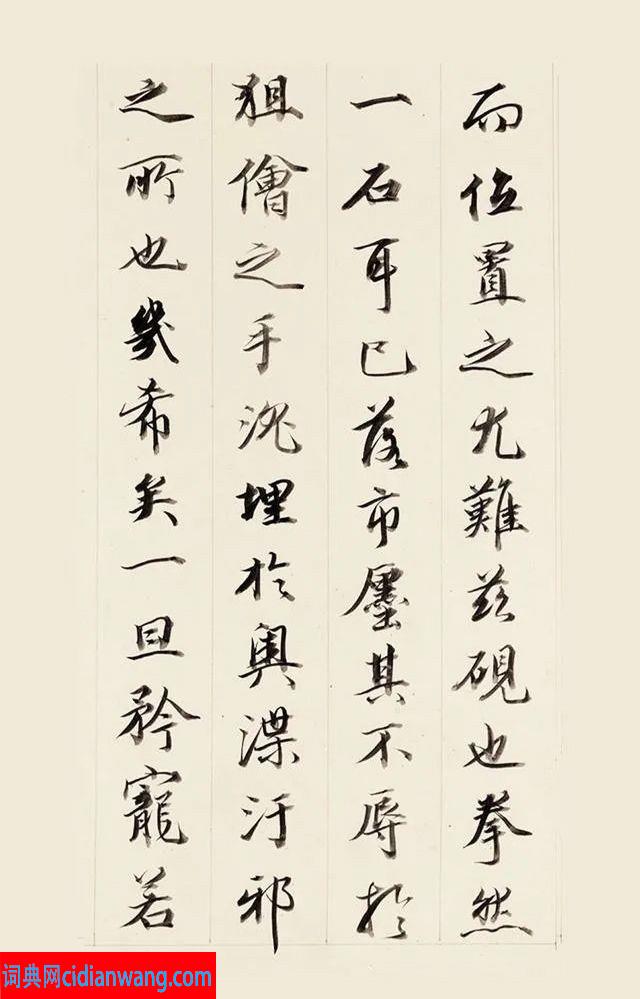 而位置之尤難茲硯也拳然
一石耳已落市廛其不辱於
狙儈之手沈埋於輿渫汙邪
之所也幾希矣一旦矜寵若
词典网cidianwang.com